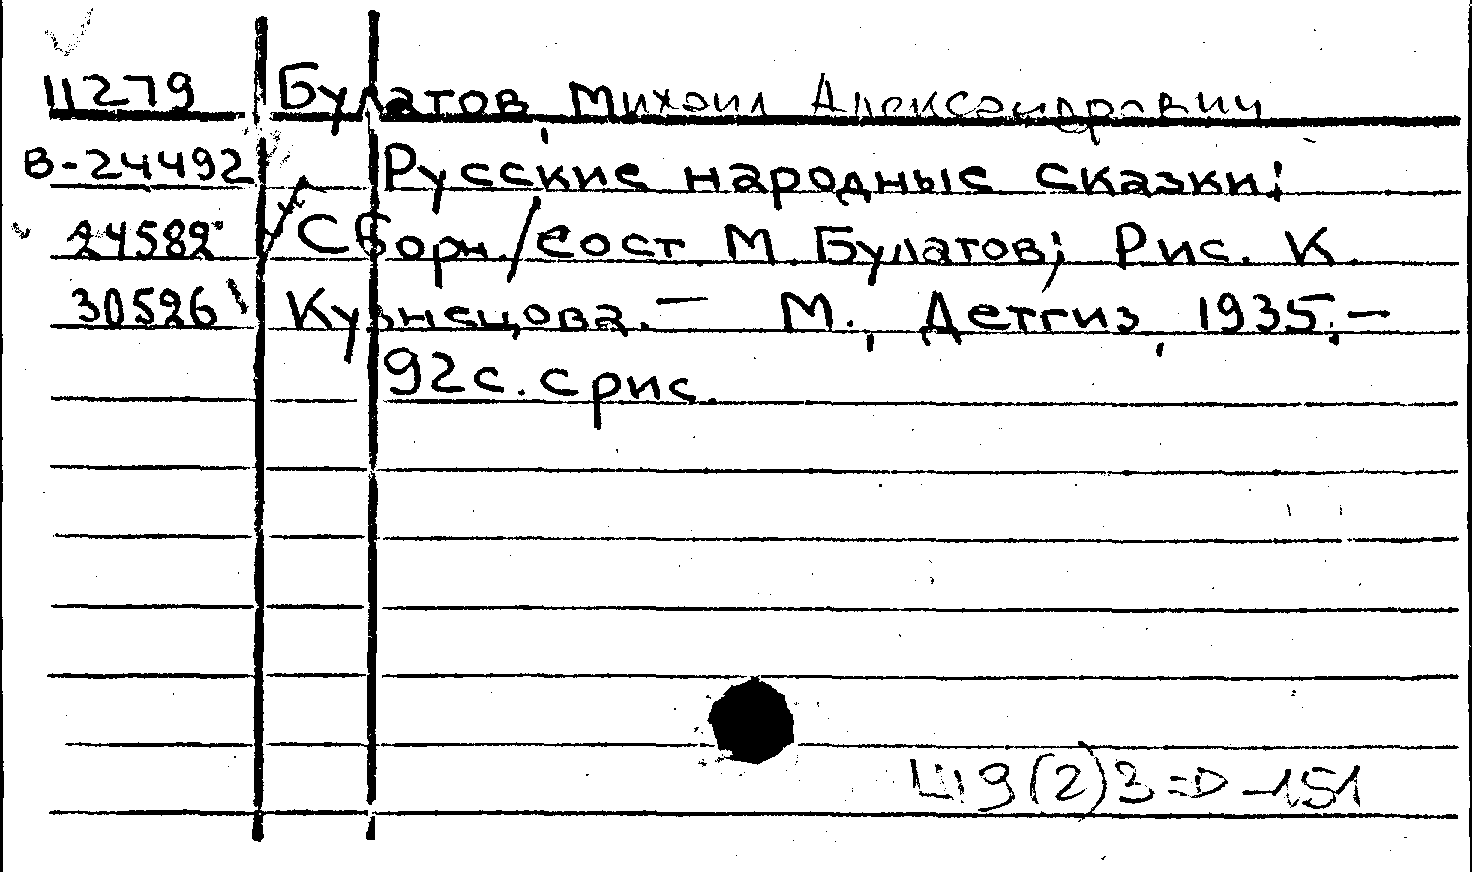 11279 Булатов, Михаил Александрович
В-24492 Русские народные сказки:
24582 Сборн./сост М. Булатов; Рис. К.
30526 Кузнецова. — М., Детгиз, 1935. —
92с. с рис.